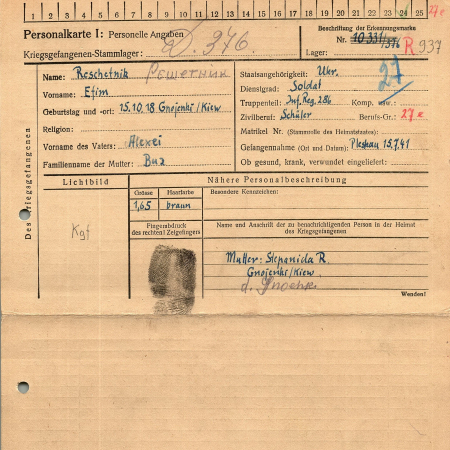 1 2 3 4 5 6 7 8 9 10 11 12 13 14 15 16 17 18 19 20 21 22 23 24 25 27e
Personalkarte I: Personelle Angaben
Kriegsgefangenen-Stammlager: D. 376.
Beschriftung der Erkennungsmarke
Nr. 10331/376 R 937
Lager:
Des Kriegsgefangenen
Name: Reschetnik Решетник
Vorname: Efim
Geburtstag und -ort: 15.10.18 Gnojenki/Kiew
Religion:
Vorname des Vaters: Alexei
Familienname der Mutter: Buz
Staatsangehörigkeit: Ukr. 27
Dienstgrad: Soldat
Truppenteil: Inf. Reg. 286 Komp. usw.:
Zivilberuf: Schüler Berufs-Gr.: 27e
Matrikel Nr. (Stammrolle des Heimatstaates):
Gefangennahme (Ort und Datum): Pleskau 15.7.41
Ob gesund, krank, verwundet eingeliefert:
Lichtbild
Kgf
Nähere Personalbeschreibung
Grösse Haarfarbe Besondere Kennzeichen:
1,65 braun
Fingerabdruck
des rechten! Zeigefingers
Name und Anschrift der zu benachrichtigenden Person in der Heimat
des Kriegsgefangenen
Mutter: Stepanida R.
Gnojenki/Kiew
Wenden!